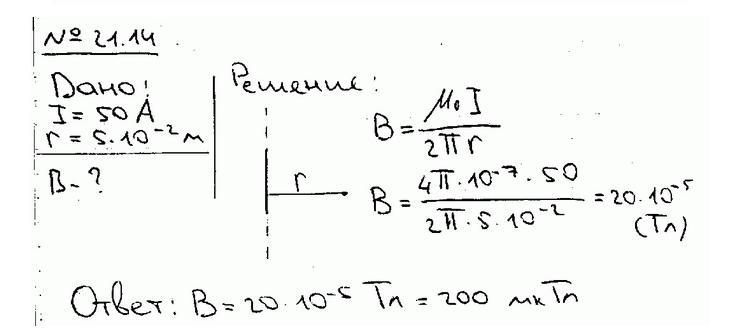 № 21.14
Дано:
I = 50 А
r = 5·10⁻² м
B - ?
Решение:
r
B = μ₀I / 2πr
B = 4π·10⁻⁷·50 / 2π·5·10⁻² = 20·10⁻⁵ (Тл)
Ответ: B = 20·10⁻⁵ Тл = 200 мкТл